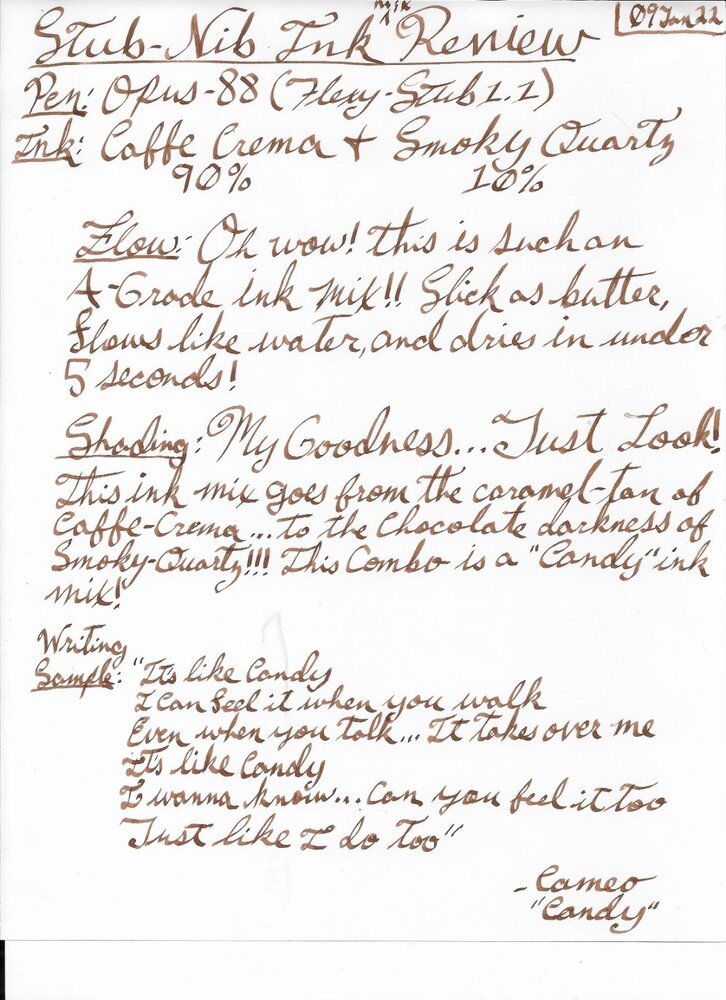 Stub-Nib Ink mix Review
09Jan22
Pen: Opus-88 (Flexy-Stub 1.1)
Ink: Caffe Crema + Smoky Quartz
90% 10%
Flow: Oh wow! this is such an
A-Grade ink mix!! Slick as butter,
flows like water, and dries in under
5 seconds!
Shading: My Goodness... Just Look!
This ink mix goes from the caramel-tan of
Caffe-Crema... to the Chocolate darkness of
Smoky-Quartz!!! This Combo is a "Candy" ink
mix!
Writing
Sample: "It's like Candy
I can feel it when you walk
Even when you talk... It takes over me
It's like Candy
I wanna know... Can you feel it too
Just like I do too"
- Cameo
"Candy"